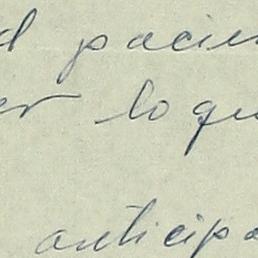 d pacien
er lo qu
anticipa